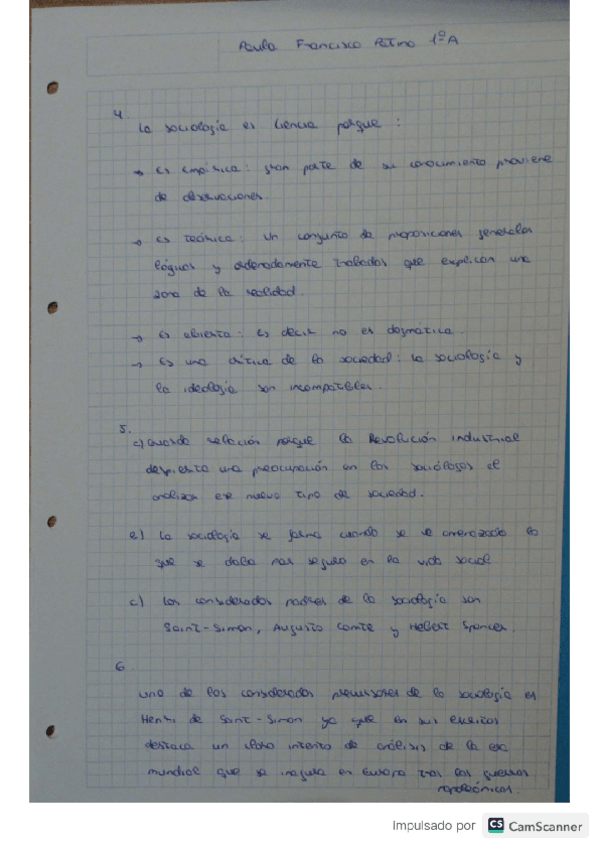 Paula Francisco Patino 1ºA
4.
La sociología es ciencia porque :
→ Es empírica: gran parte de su conocimiento proviene
de observaciones.
→ Es teórica: Un conjunto de proposiciones generales
lógicas y ordenadamente trabadas que explican una
zona de la realidad.
→ Es abierta: es decir no es dogmática.
→ Es una crítica de la sociedad: la sociología y
la ideología son incompatibles.
5.
c) Guarda relación porque la Revolución industrial
despierta una preocupación en los sociólogos el
analizar ese nuevo tipo de sociedad.
e) La sociología se forma cuando se ve amenazado lo
que se daba por seguro en la vida social
c) Los considerados padres de la sociología son
Saint-Simon, Augusto Comte y Hebert Spencer.
6.
Uno de los considerados precursores de la sociología es
Henri de Saint-Simon ya que en sus escritos
destaca un claro intento de análisis de la era
mundial que se inagura en Europa tras las guerras
napoleónicas.
Impulsado por CS CamScanner